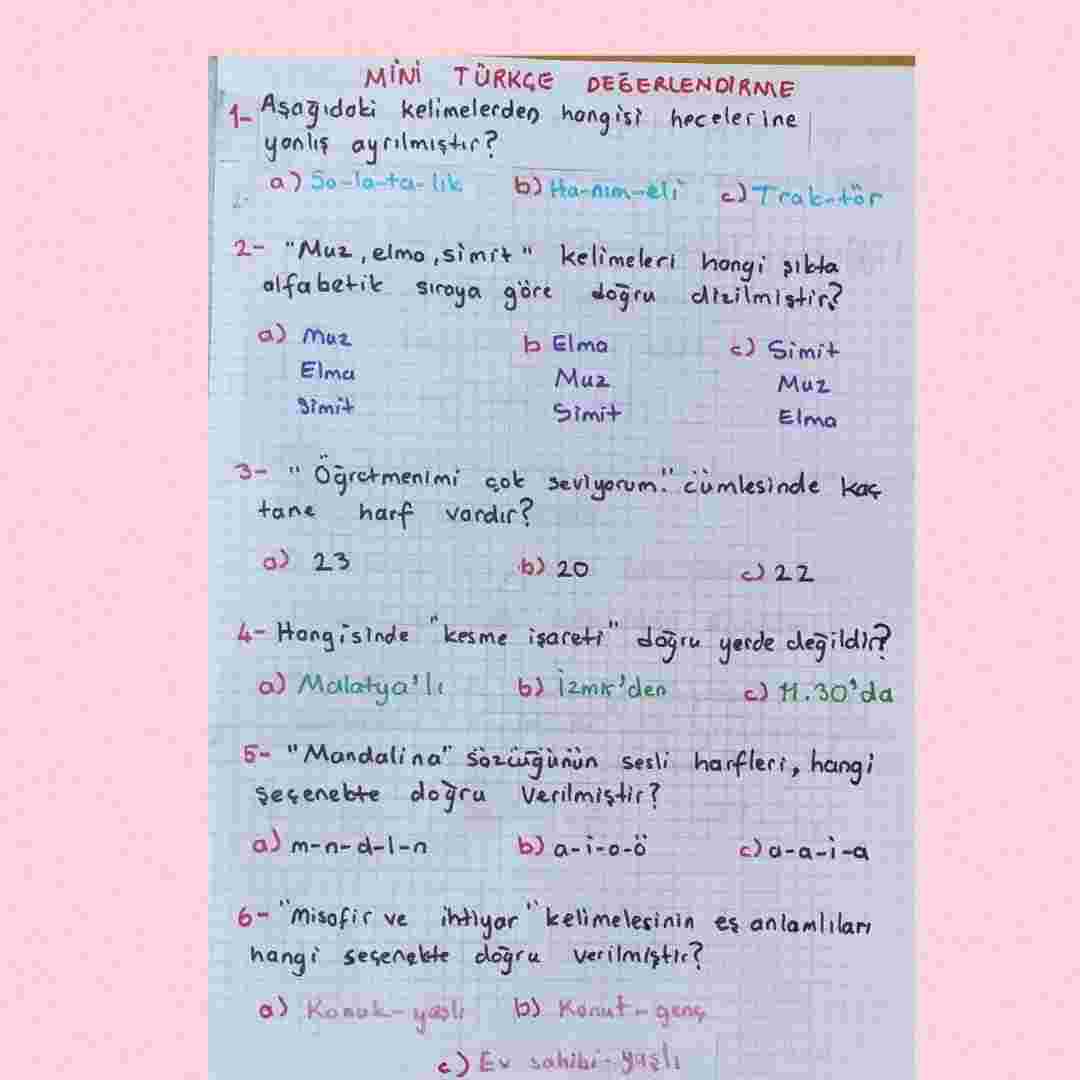 MİNİ TÜRKÇE DEĞERLENDİRME
1- Aşağıdaki kelimelerden hangisi hecelerine
yanlış ayrılmıştır?
a) Sa-la-ta-lık b) Ha-nım-eli c) Trak-tör
2- "Muz, elma, simit" kelimeleri hangi şıkta
alfabetik sıraya göre doğru dizilmiştir?
a) Muz b Elma c) Simit
Elma Muz Muz
Simit Simit Elma
3- "Öğretmenimi çok seviyorum." cümlesinde kaç
tane harf vardır?
a) 23 b) 20 c) 22
4- Hangisinde "kesme işareti" doğru yerde değildir?
a) Malatya'lı b) İzmir'den c) 11.30'da
5- "Mandalina" sözcüğünün sesli harfleri, hangi
seçenekte doğru verilmiştir?
a) m-n-d-l-n b) a-i-o-ö c) a-a-i-a
6- "misafir ve ihtiyar" kelimelerinin eş anlamlıları
hangi seçenekte doğru verilmiştir?
a) Konuk-yaşlı b) Konut-genç
c) Ev sahibi-yaşlı